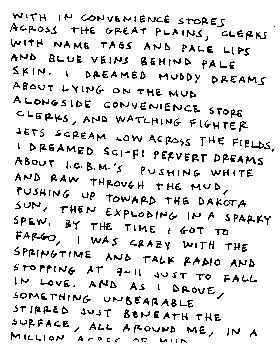 WITH IN CONVENIENCE STORES
ACROSS THE GREAT PLAINS, CLERKS
WITH NAME TAGS AND PALE LIPS
AND BLUE VEINS BEHIND PALE
SKIN. I DREAMED MUDDY DREAMS
ABOUT LYING ON THE MUD
ALONGSIDE CONVENIENCE STORE
CLERKS, AND WATCHING FIGHTER
JETS SCREAM LOW ACROSS THE FIELDS.
I DREAMED SCI-FI PERVERT DREAMS
ABOUT I.C.B.M.'S PUSHING WHITE
AND RAW THROUGH THE MUD,
PUSHING UP TOWARD THE DAKOTA
SUN, THEN EXPLODING IN A SPARKY
SPEW. BY THE TIME I GOT TO
FARGO, I WAS CRAZY WITH THE
SPRINGTIME AND TALK RADIO AND
STOPPING AT 7-11 JUST TO FALL
IN LOVE. AND AS I DROVE,
SOMETHING UNBEARABLE
STIRRED JUST BENEATH THE
SURFACE, ALL AROUND ME, IN A
MILLION ACRES OF MUD